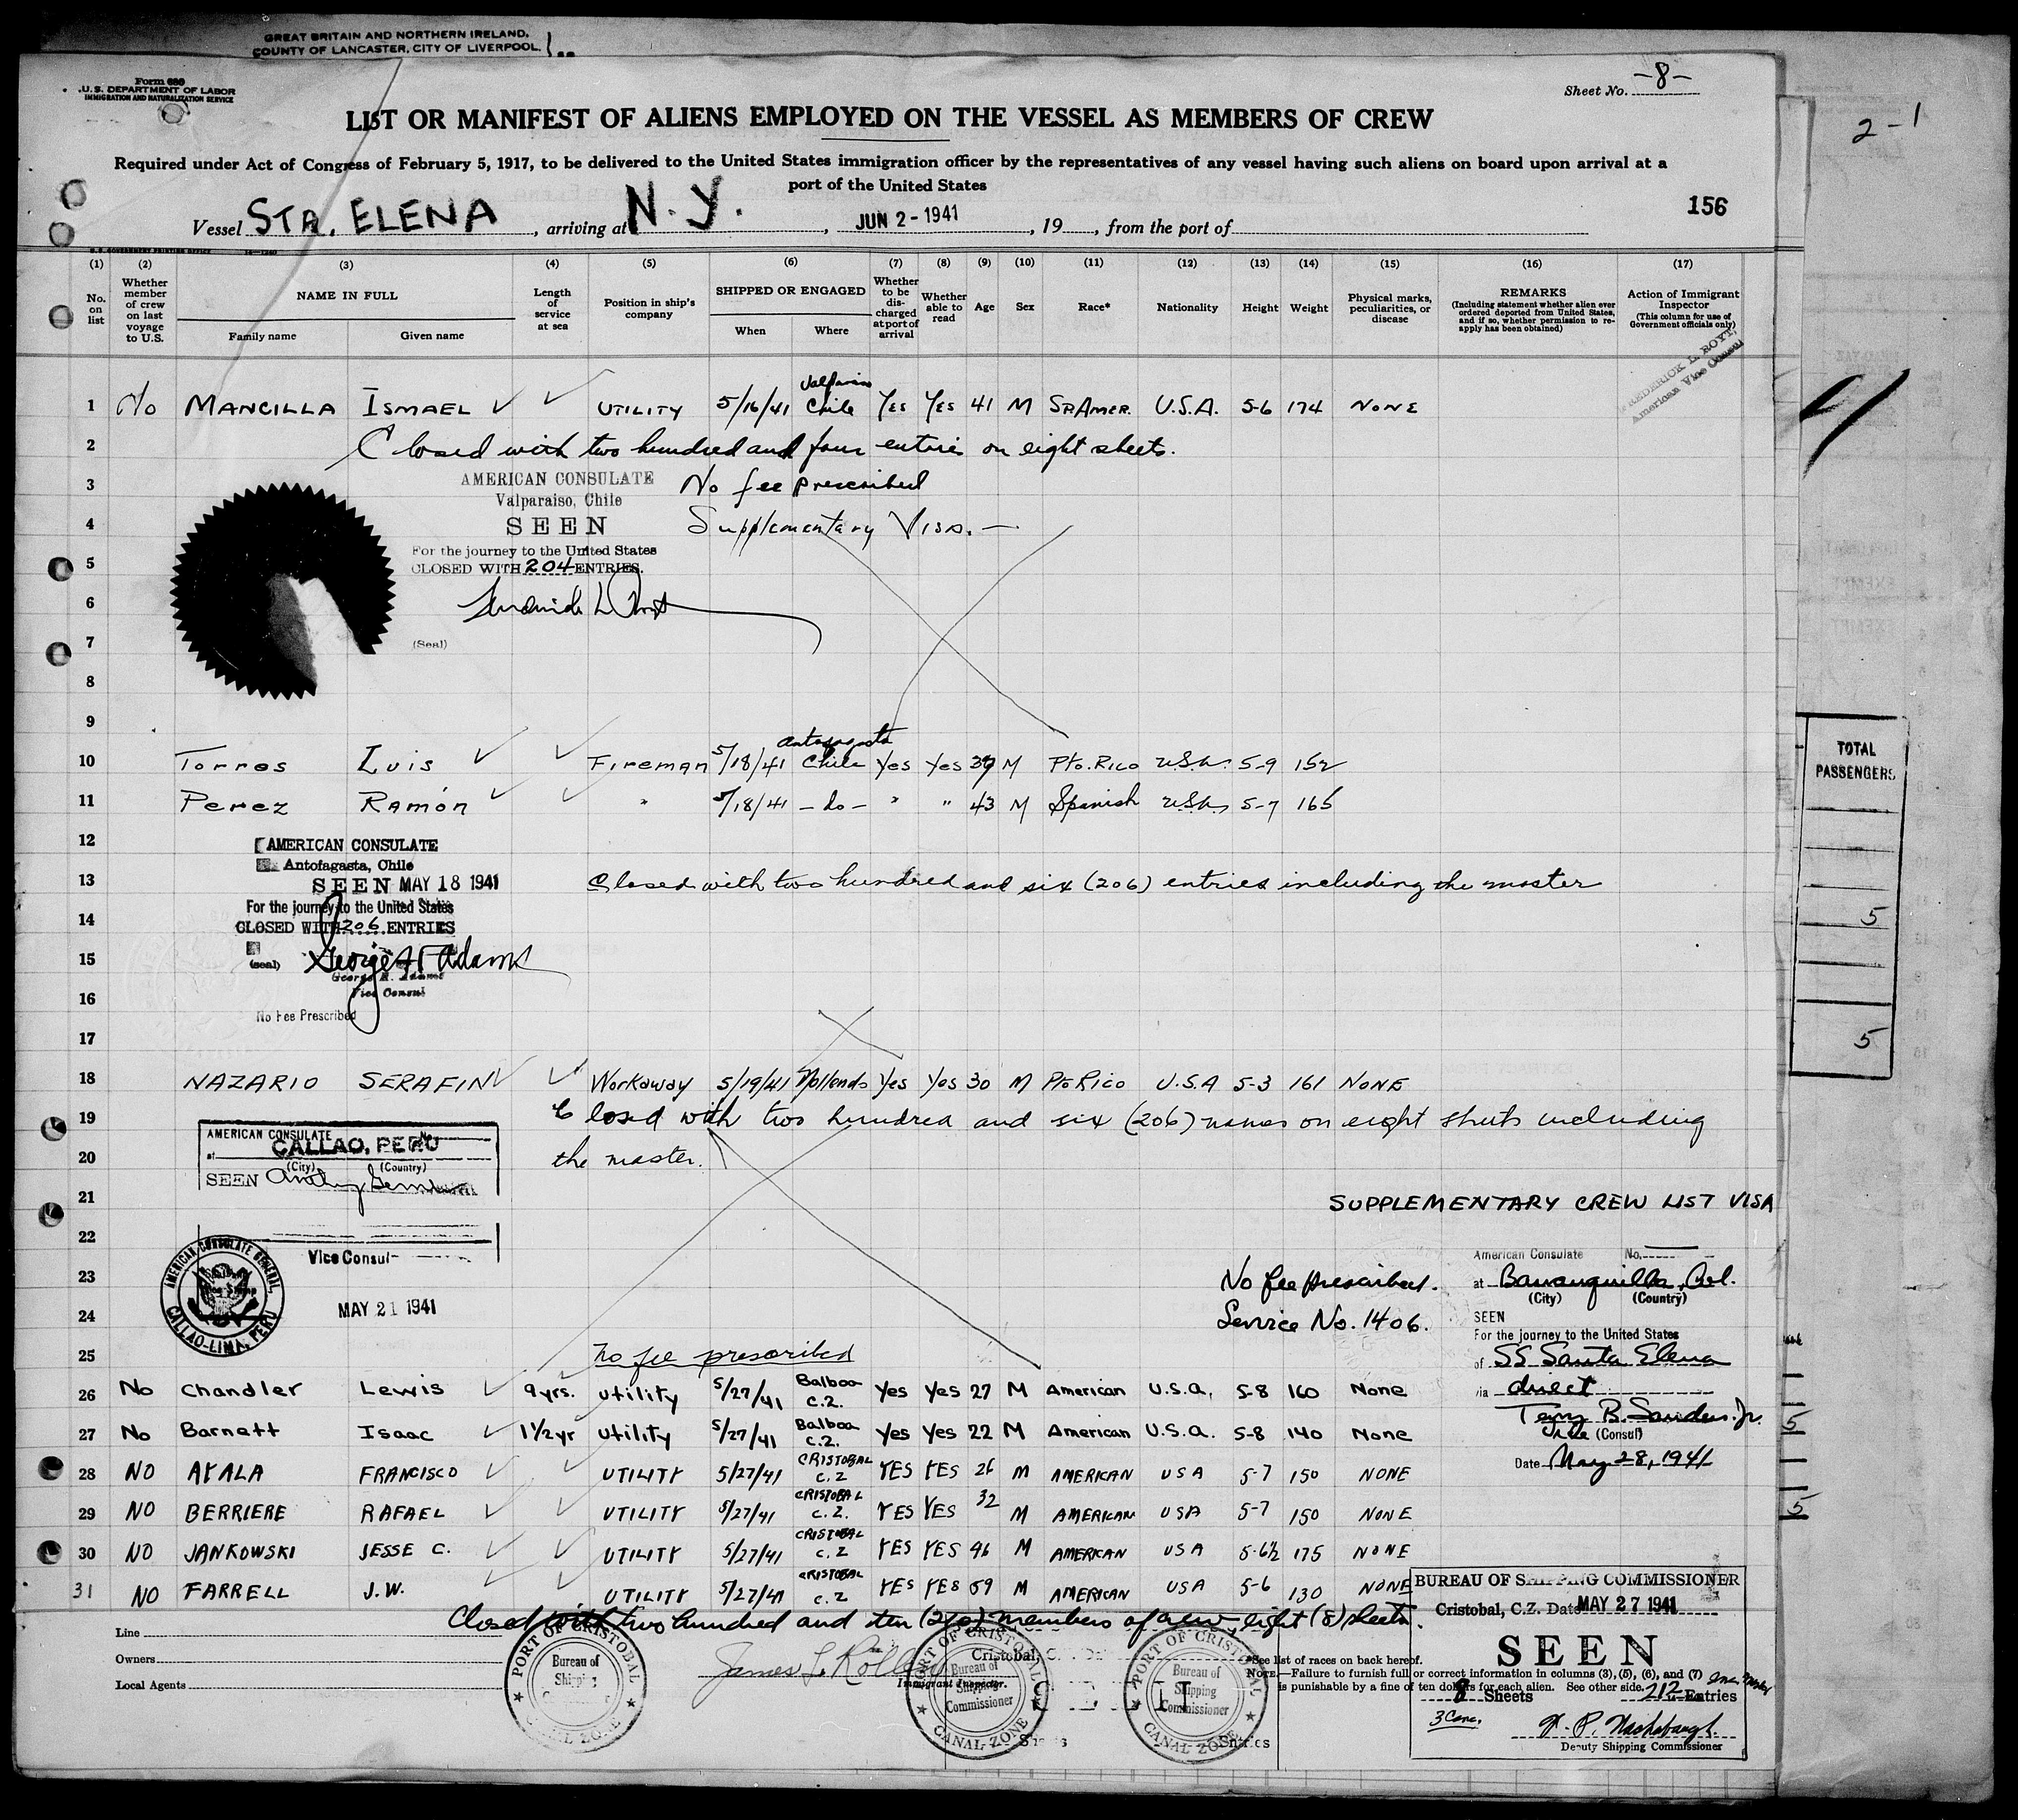 GREAT BRITAIN AND NORTHERN IRELAND,
COUNTY OF LANCASTER, CITY OF LIVERPOOL,
Form 680
U.S. DEPARTMENT OF LABOR
IMMIGRATION AND NATURALIZATION SERVICE
Sheet No. -8-
2-1
LIST OR MANIFEST OF ALIENS EMPLOYED ON THE VESSEL AS MEMBERS OF CREW
Required under Act of Congress of February 5, 1917, to be delivered to the United States immigration officer by the representatives of any vessel having such aliens on board upon arrival at a
port of the United States
156
Vessel STA. ELENA, arriving at N.Y., JUN 2-1941, 19, from the port of
U.S. GOVERNMENT PRINTING OFFICE
(1) (2) (3) (4) (5) (6) (7) (8) (9) (10) (11) (12) (13) (14) (15) (16) (17)
No. on list
Whether member of crew on last voyage to U.S.
NAME IN FULL
Family name
Given name
Length of service at sea
Position in ship's company
SHIPPED OR ENGAGED
When
Where
Whether to be discharged at port of arrival
Whether able to read
Age
Sex
Race*
Nationality
Height
Weight
Physical marks, peculiarities, or disease
REMARKS
(Including statement whether alien ever ordered deported from United States, and if so, whether permission to reapply has been obtained)
Action of Immigrant Inspector
(This column for use of Government officials only)
American Vice Consul
1 No MANCILLA ISMAEL UTILITY 5/16/41 Valparaiso Chile Yes Yes 41 M SP.AMER. U.S.A. 5-6 174 NONE
2 Closed with two hundred and four entries on eight sheets.
3 No fee prescribed
AMERICAN CONSULATE
Valparaiso, Chile
4 SEEN Supplementary Visa.-
5 For the journey to the United States
CLOSED WITH 204 ENTRIES.
6
7 (Seal)
8
9
10 Torres Luis Fireman 5/18/41 Antofagasta Chile Yes Yes 39 M Pto.Rico U.S.A. 5-9 152
11 Perez Ramón " 5/18/41 -do- " " 43 M Spanish U.S.A. 5-7 165
12 AMERICAN CONSULATE
Antofagasta, Chile
13 SEEN MAY 18 1941 Closed with two hundred and six (206) entries including the master
For the journey to the United States
14 CLOSED WITH 206 ENTRIES
15 (seal) George H Adams
George H. Adams
16 Vice Consul
No Fee Prescribed
17
18 NAZARIO SERAFIN Workaway 5/19/41 Mollendo Yes Yes 30 M Pto Rico U.S.A 5-3 161 NONE
19 Closed with two hundred and six (206) names on eight sheets including
20 the master.
AMERICAN CONSULATE No.
at CALLAO, PERU
(City) (Country)
SEEN
21 SUPPLEMENTARY CREW LIST VISA
22
Vice Consul
AMERICAN CONSULATE GENERAL, CALLAO-LIMA, PERU
MAY 21 1941
American Consulate No.
23 No fee prescribed. at Barranquilla, Col.
(City) (Country)
24 Service No. 1406. SEEN
For the journey to the United States
25 No fee prescribed of SS Santa Elena
via direct
Terry B. Sanders, Jr.
Vice (Consul)
Date May 28, 1941
26 No Chandler Lewis 9yrs. Utility 5/27/41 Balboa C.Z. Yes Yes 27 M American U.S.A. 5-8 160 None
27 No Barnett Isaac 1 1/2 yr Utility 5/27/41 Balboa C.Z. Yes Yes 22 M American U.S.A. 5-8 140 None
28 NO AYALA FRANCISCO UTILITY 5/27/41 CRISTOBAL C.Z YES YES 26 M AMERICAN USA 5-7 150 NONE
29 NO BERRIERE RAFAEL UTILITY 5/27/41 CRISTOBAL C.Z. YES YES 32 M AMERICAN USA 5-7 150 NONE
30 NO JANKOWSKI JESSE C. UTILITY 5/27/41 CRISTOBAL C.Z YES YES 46 M AMERICAN USA 5-6½ 175 NONE
31 NO FARRELL J.W. UTILITY 5/27/41 CRISTOBAL C.Z YES YES 59 M AMERICAN USA 5-6 130 NONE
Closed with two hundred and ten (210) members of crew, eight (8) sheets.
Line
Owners
Local Agents
PORT OF CRISTOBAL
Bureau of Shipping Commissioner
CANAL ZONE
Immigrant Inspector.
PORT OF CRISTOBAL
Bureau of Shipping Commissioner
CANAL ZONE
Cristobal,
PORT OF CRISTOBAL
Bureau of Shipping Commissioner
CANAL ZONE
*See list of races on back hereof.
NOTE.—Failure to furnish full or correct information in columns (3), (5), (6), and (7)
is punishable by a fine of ten dollars for each alien. See other side.
BUREAU OF SHIPPING COMMISSIONER
Cristobal, C.Z. Date MAY 27 1941
SEEN
8 Sheets 212 Entries
Deputy Shipping Commissioner
TOTAL PASSENGERS
5
5
5
5